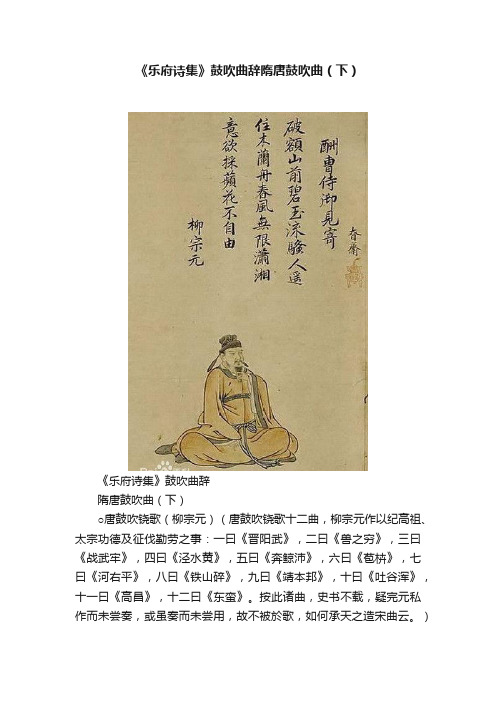 《乐府诗集》鼓吹曲辞隋唐鼓吹曲（下）
酬曹侍御見寄
春齋
破額山前碧玉流騷人遥
住木蘭舟春風無限瀟湘
意欲採蘋花不自由
柳宗元
《乐府诗集》鼓吹曲辞
隋唐鼓吹曲（下）
○唐鼓吹铙歌（柳宗元）（唐鼓吹铙歌十二曲，柳宗元作以纪高祖、
太宗功德及征伐勤劳之事：一曰《晋阳武》，二曰《兽之穷》，三曰
《战武牢》，四曰《泾水黄》，五曰《奔鲸沛》，六曰《苞枿》，七
曰《河右平》，八曰《铁山碎》，九曰《靖本邦》，十曰《吐谷浑》，
十一曰《高昌》，十二曰《东蛮》。按此诸曲，史书不载，疑完元私
作而未尝奏，或虽奏而未尝用，故不被於歌，如何承天之造宋曲云。）